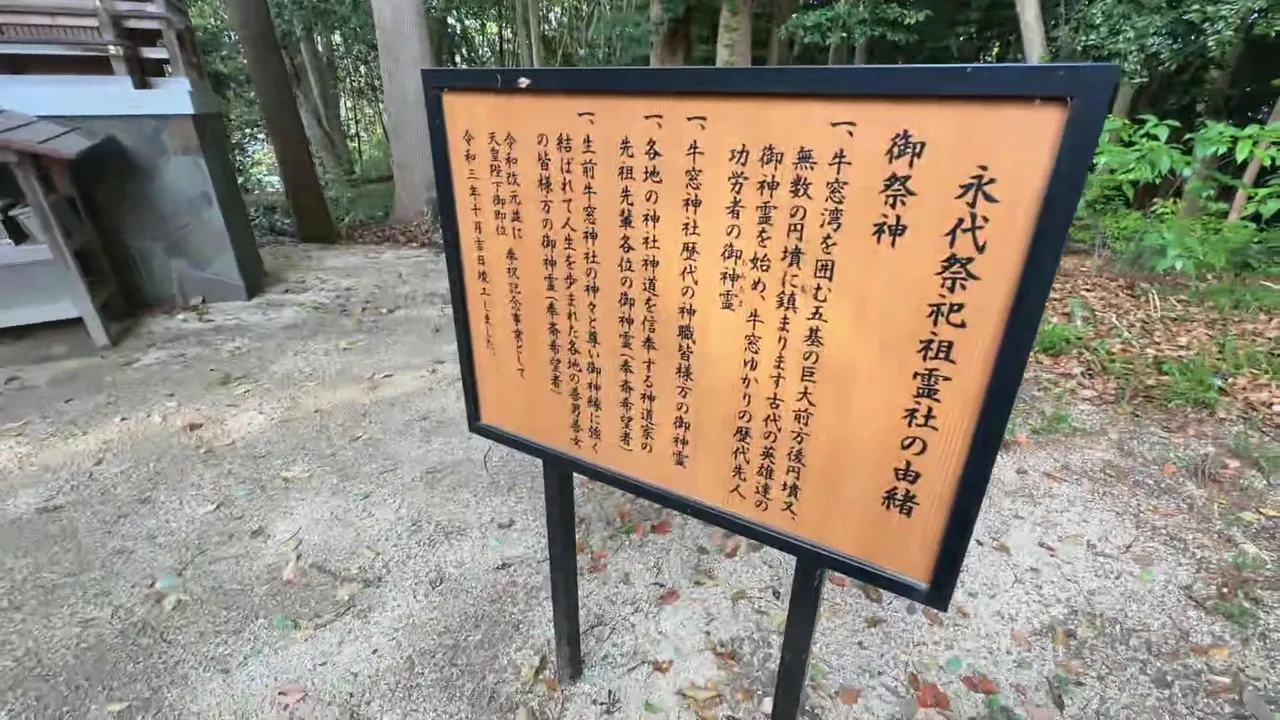 永代祭祀祖霊社の由緒
御祭神
一、牛窓湾を囲む五基の巨大前方後円墳又、
無数の円墳に鎮まります古代の英雄達の
御神霊を始め、牛窓ゆかりの歴代先人
功労者の御神霊
一、牛窓神社歴代の神職皆様方の御神霊
一、各地の神社神道を信奉する神道家の
先祖先輩各位の御神霊(奉斎希望者)
一、生前牛窓神社の神々と尊い御神縁に強く
結ばれて人生を歩まれた各地の善男善女
の皆様方の御神霊(奉斎希望者)
令和改元並に 奉祝記念事業として
天皇陛下御即位
令和三年十月吉日竣工しました。